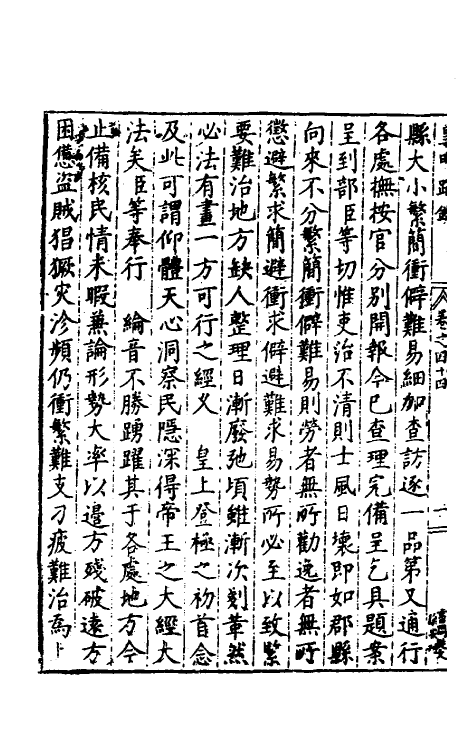 皇明疏鈔 卷之四十四
縣大小繁簡衝僻難易細加查訪逐一品第又通行
各處撫按官分别開報今已查理完備呈乞具題案
呈到部臣等切惟吏治不清則士風日壞即如郡縣
向來不分繁簡衝僻難易則勞者無所勸逸者無所
懲避繁求簡避衝求僻避難求易勢所必至以致緊
要難治地方缺人整理日漸廢弛頃雖漸次剗革然
必法有畫一方可行之經乂 皇上登極之初首念
及此可謂仰體天心洞察民隱深得帝王之大經大
法矣臣等奉行 綸音不勝踴躍其于各處地方今
止備核民情未暇兼論形勢大率以邉方殘破遠方
困憊盗賊猖獗灾沴頻仍衝繁難支刁疲難治爲上